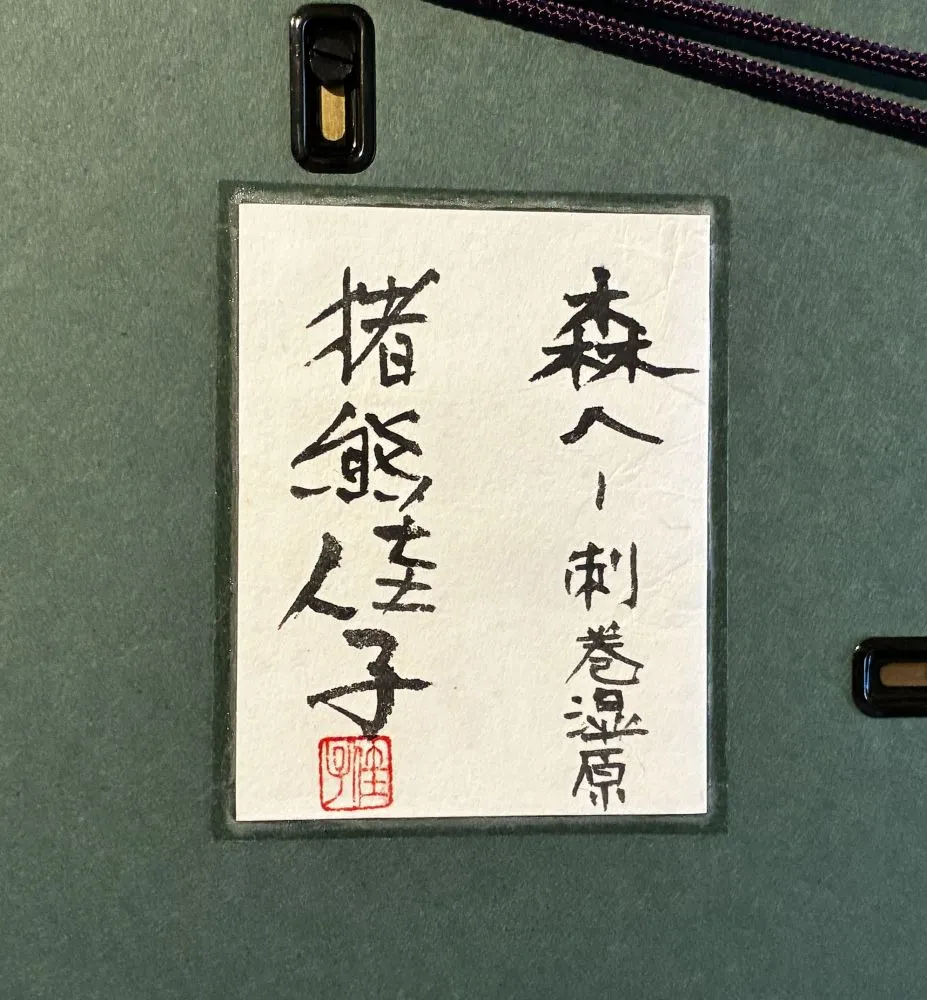 森へー刺巻湿原
猪熊佳子
佳子